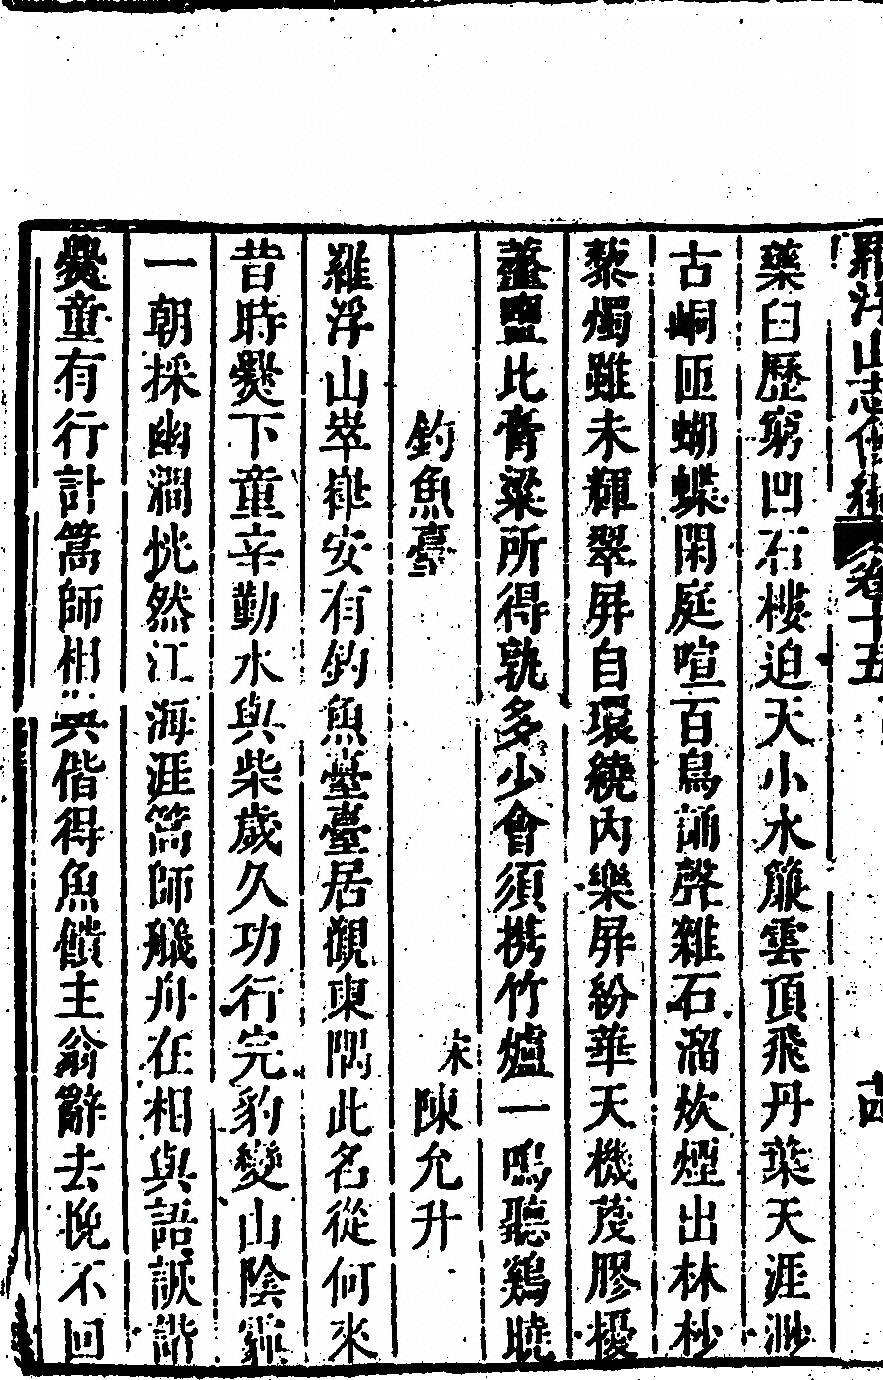 羅浮山志會編 卷十五 十四
藥臼歷窮凹石樓迫天小水簾雲頂飛丹葉天涯渺
古峒匝蝴蝶閑庭喧百鳥誦聲雜石溜炊煙出林杪
藜燭雖未輝翠屏自環繞內樂屏紛華天機茂膠擾
虀鹽比膏粱所得孰多少會須携竹爐一鳴聽鷄曉
釣魚臺 宋陳允升
羅浮山崒嵂安有釣魚臺臺居觀東隅此名從何來
昔時爨下童辛勤水與柴歲久功行完豹變山陰霾
一朝採幽澗恍然江海涯篙師艤舟在相與語詼諧
爨童有行計篙師相與偕得魚饋主翁辭去晚不回